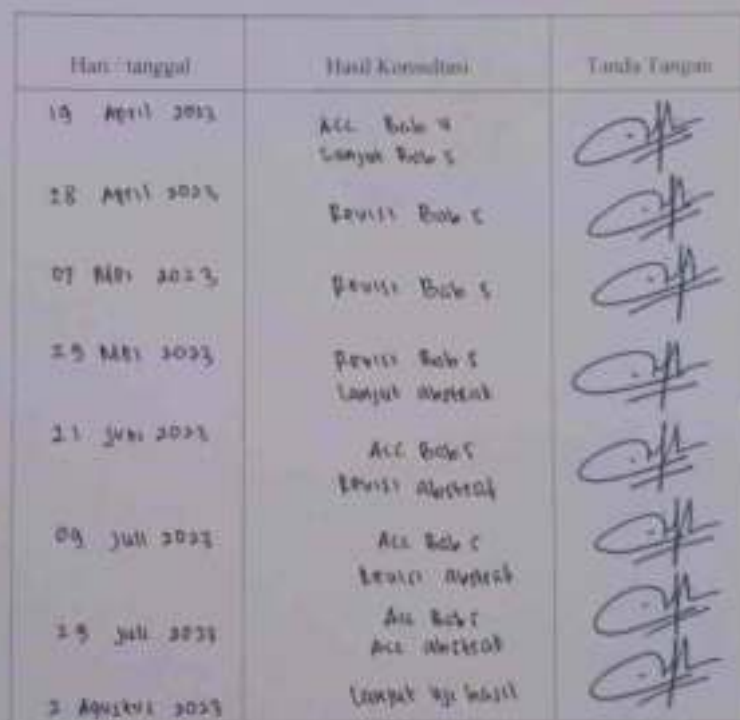 Hari / tanggal Hasil Konsultasi Tanda Tangan
19 April 2023 Acc Bab 4
Lanjut Bab 5
28 April 2023 Revisi Bab 5
07 Mei 2023 Revisi Bab 5
29 Mei 2023 Revisi Bab 5
Lanjut abstrak
21 Juni 2023 Acc Bab 5
Revisi abstrak
09 Juli 2023 Acc Bab 5
Revisi abstrak
29 Juli 2023 Acc Bab 5
Acc abstrak
2 Agustus 2023 Lanjut uji hasil